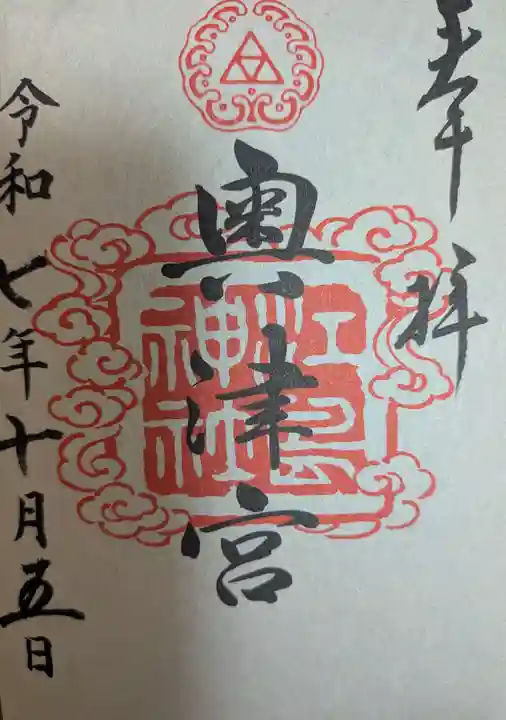 奉拝
奥津宮
江島
神社
令和七年十月五日